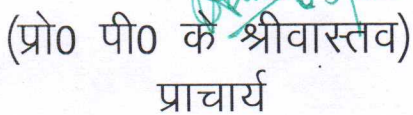 (प्रो0 पी0 के श्रीवास्तव)
प्राचार्य